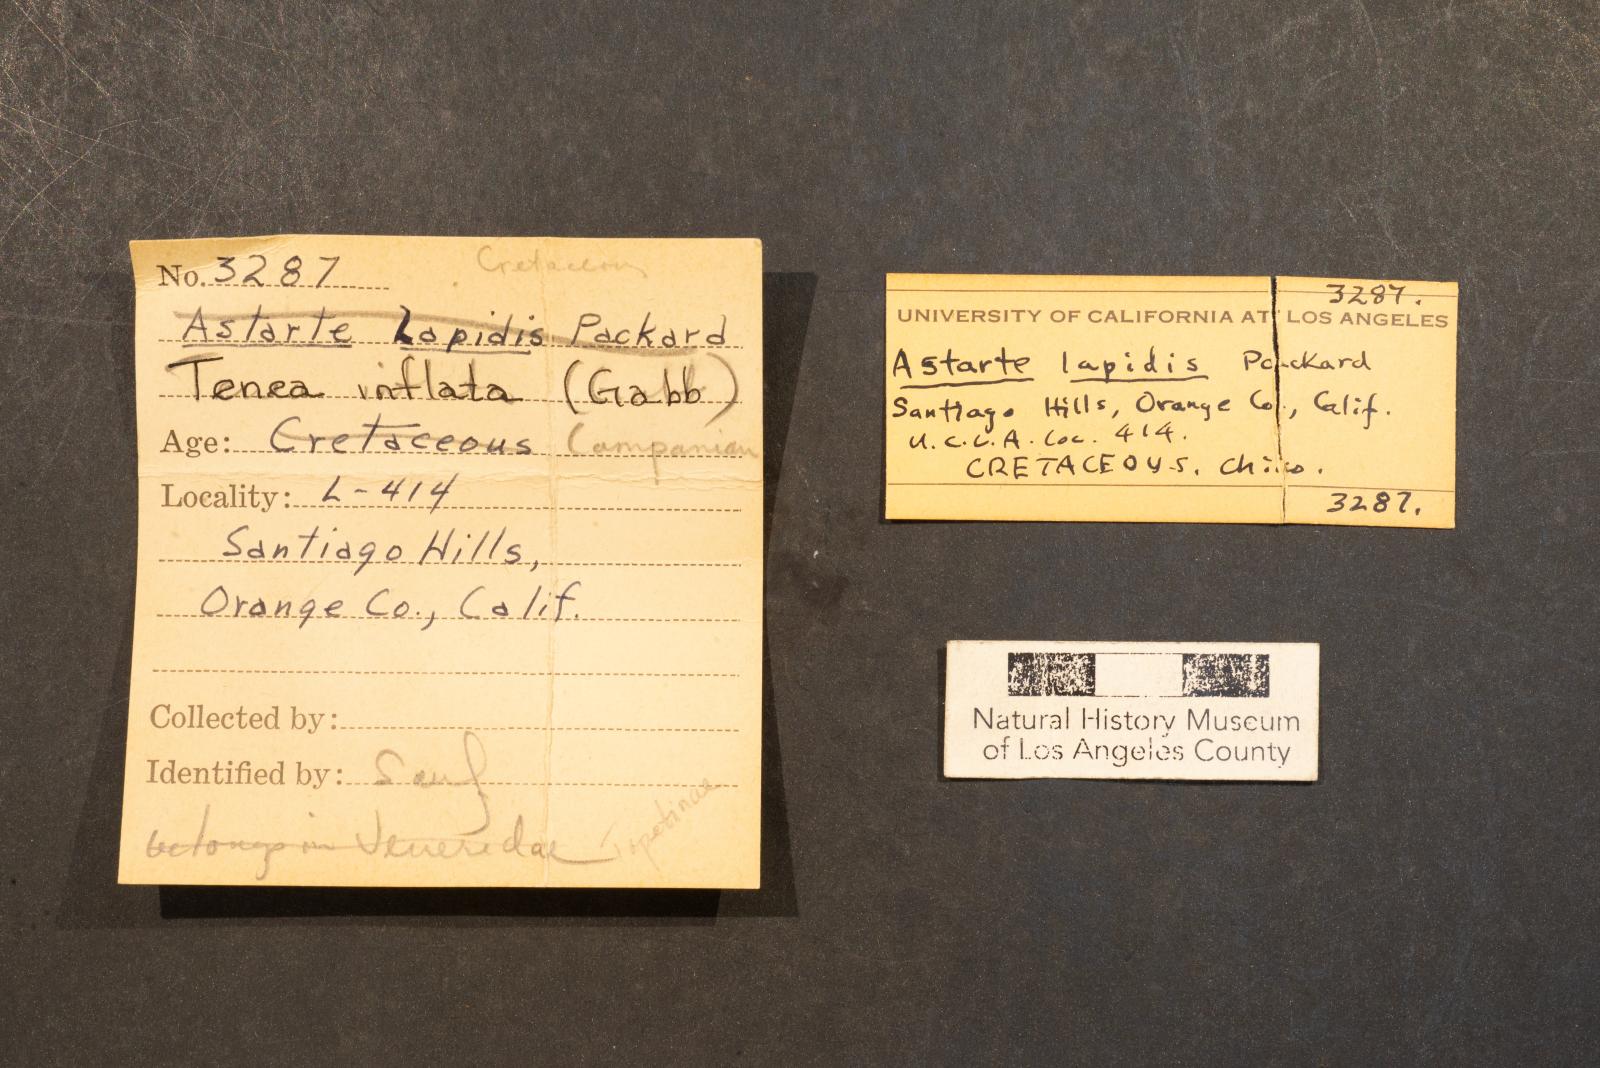 Cretaceous
No. 3287
Astarte Lapidis Packard
Tenea inflata (Gabb)
Age: Cretaceous Campanian
Locality: L-414
Santiago Hills,
Orange Co., Calif.
Collected by:
Identified by: Saul
belongs in Veneridae Tapetinae
3287.
UNIVERSITY OF CALIFORNIA AT LOS ANGELES
Astarte lapidis Packard
Santiago Hills, Orange Co., Calif.
U.C.L.A. Loc. 414.
CRETACEOUS. Chico.
3287.
Natural History Museum
of Los Angeles County